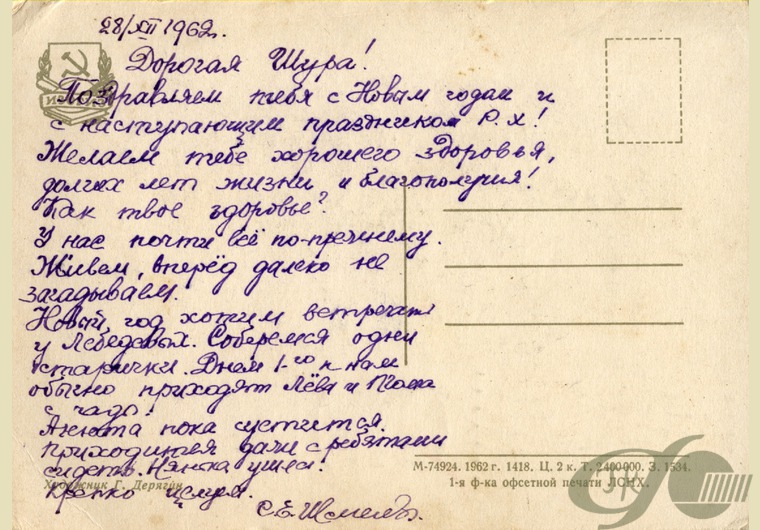 28/XII 1962.
Дорогая Шура!
Поздравляем тебя с Новым годом и
с наступающим праздником Р.Х!
Желаем тебе хорошего здоровья,
долгих лет жизни и благополучия!
Как твое здоровье?
У нас почти всё по-прежнему.
Живем, вперёд далеко не
загадываем.
Новый год хотим встречать
у Лебедевых. Соберемся одни
старички. Днем 1-го к нам
обычно приходят Лёва и
с чадо!
Анюта пока суетится.
приходится дома с ребятами
сидеть. Нянька ушла!
Крепко целуем.
С.Е.
Художник Г. Дерягин
М-74924. 1962 г. 1418. Ц. 2 к. Т. 2400000. З. 1534.
1-я ф-ка офсетной печати ЛСНХ.